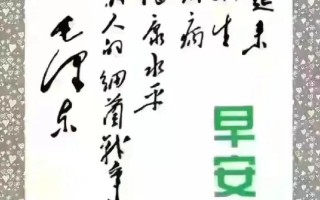 起来
生
病
康水平
人的细菌战争
毛泽东
早安